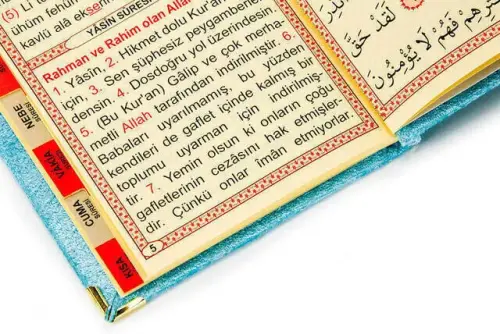 (5) Lİ
ühüm fehüm
kavlü alâ ekserihim
YÂSİN SÛRESİ
Rahman ve Rahim olan Allah
1. Yâsîn. 2. Hikmet dolu Kur'an
için, 3. Sen şüphesiz peygamberler-
densin. 4. Dosdoğru yol üzerindesin.
5. (Bu Kur'an) Gâlip ve çok merha-
metli Allah tarafından indirilmiştir. 6.
Babaları uyarılmamış, bu yüzden
kendileri de gaflet içinde kalmış bir
toplumu uyarman için indirilmiş-
tir. 7. Yemin olsun ki onların çoğu
gafletlerinin cezâsını hak etmişler-
dir. Çünkü onlar îmân etmiyorlar.
5
NEBE
SÛRESİ
VÂKIA
CUMA
SÛRESİ
KISA
لَقَدْ حَقَّ
فَهُمْ لَا يُؤْمِنُونَ